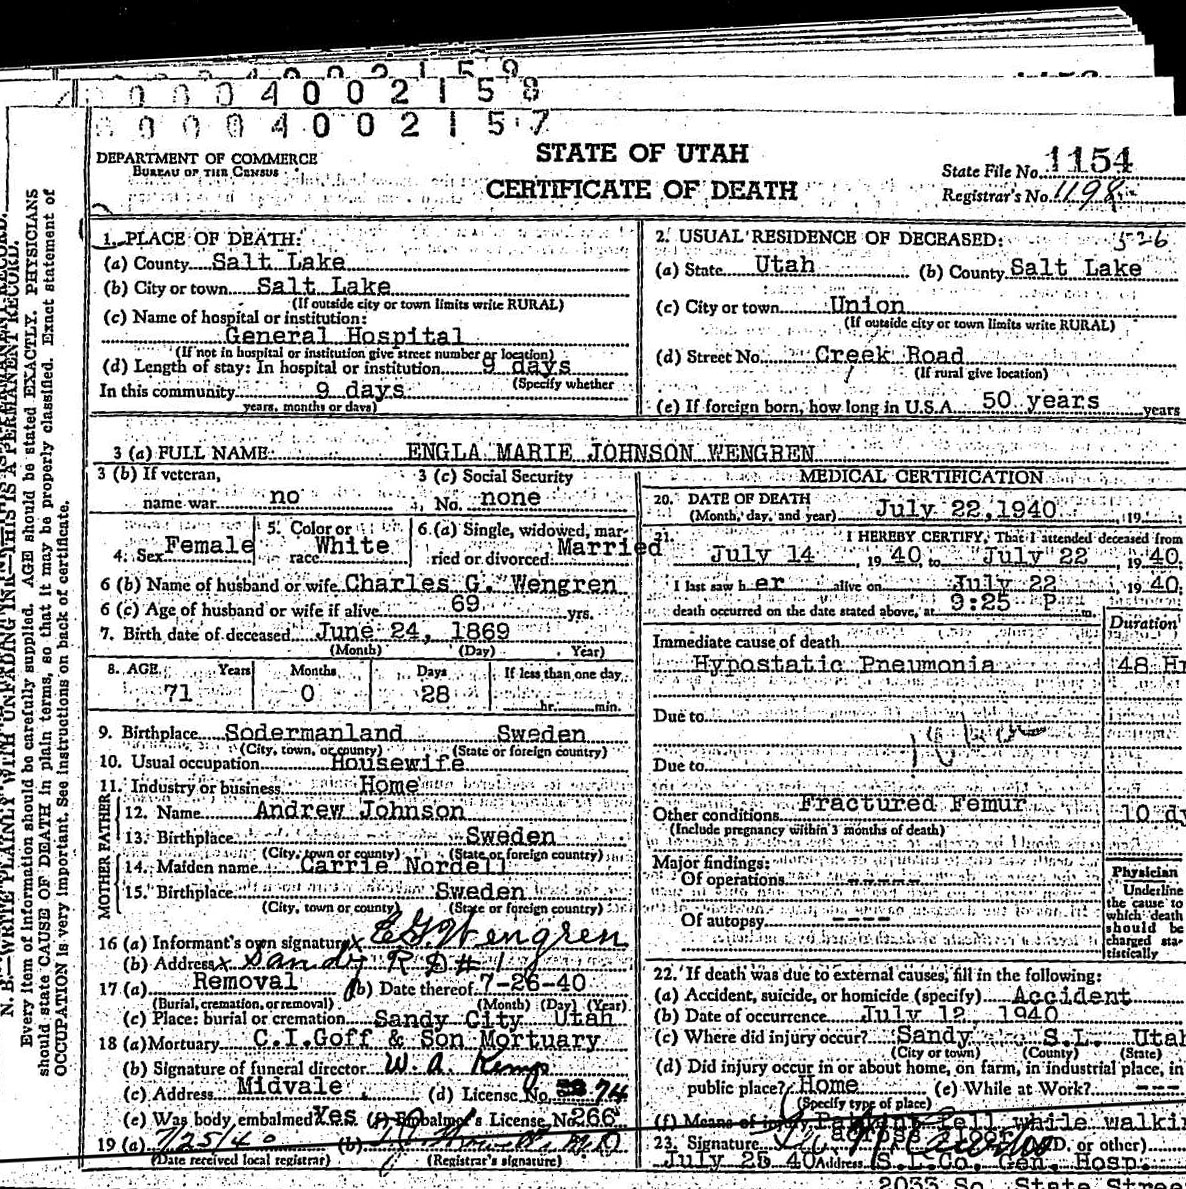 0 0 0 4 0 0 2 1 5 9
0 0 0 4 0 0 2 1 5 8
0 0 0 4 0 0 2 1 5 7
DEPARTMENT OF COMMERCE
BUREAU OF THE CENSUS
STATE OF UTAH
CERTIFICATE OF DEATH
State File No. 1154
Registrar's No. 1198
N. B.—WRITE PLAINLY WITH UNFADING INK—THIS IS A PERMANENT RECORD.
Every item of information should be carefully supplied. AGE should be stated EXACTLY. PHYSICIANS
should state CAUSE OF DEATH in plain terms, so that it may be properly classified. Exact statement of
OCCUPATION is very important. See instructions on back of certificate.
1. PLACE OF DEATH:
(a) County Salt Lake
(b) City or town Salt Lake
(If outside city or town limits write RURAL)
(c) Name of hospital or institution:
General Hospital
(If not in hospital or institution give street number or location)
(d) Length of stay: In hospital or institution 9 days
(Specify whether
In this community 9 days
years, months or days)
2. USUAL RESIDENCE OF DECEASED: 526
(a) State Utah (b) County Salt Lake
(c) City or town Union
(If outside city or town limits write RURAL)
(d) Street No. Creek Road
(If rural give location)
(e) If foreign born, how long in U.S.A. 50 years years
3 (a) FULL NAME ENGLA MARIE JOHNSON WENGREN
3 (b) If veteran,
name war no
3 (c) Social Security
No. none
4. Sex Female
5. Color or
race White
6. (a) Single, widowed, mar-
ried or divorced Married
6 (b) Name of husband or wife Charles G. Wengren
6 (c) Age of husband or wife if alive 69 yrs.
7. Birth date of deceased June 24, 1869
(Month) (Day) (Year)
8. AGE Years Months Days If less than one day
71 0 28 hr. min.
9. Birthplace Sodermanland Sweden
(City, town, or county) (State or foreign country)
10. Usual occupation Housewife
11. Industry or business Home
FATHER
12. Name Andrew Johnson
13. Birthplace Sweden
(City, town or county) (State or foreign country)
MOTHER
14. Maiden name Carrie Nordell
15. Birthplace Sweden
(City, town or county) (State or foreign country)
16 (a) Informant's own signature x E G Wengren
(b) Address x Sandy R D # 1
17 (a) Removal (b) Date thereof 7-26-40
(Burial, cremation, or removal) (Month) (Day) (Year)
(c) Place: burial or cremation Sandy City Utah
18 (a) Mortuary C.I.Goff & Son Mortuary
(b) Signature of funeral director W. A. Kemp
(c) Address Midvale (d) License No. 74
(e) Was body embalmed Yes (f) Embalmer's License No. 266
19 (a) 7/25/40 (b) M.D.
(Date received local registrar) (Registrar's signature)
MEDICAL CERTIFICATION
20. DATE OF DEATH
(Month, day, and year) July 22, 1940, 19
21. I HEREBY CERTIFY, That I attended deceased from
July 14, 19 40, to July 22, 19 40;
I last saw h er alive on July 22, 19 40;
death occurred on the date stated above, at 9:25 P m.
Duration
Immediate cause of death
Hypostatic Pneumonia 48 H
Due to
Due to
Other conditions Fractured Femur 10 dy
(Include pregnancy within 3 months of death)
Major findings:
Of operations -----
Of autopsy ----
Physician
Underline
the cause to
which death
should be
charged sta-
tistically
22. If death was due to external causes, fill in the following:
(a) Accident, suicide, or homicide (specify) Accident
(b) Date of occurrence July 12, 1940
(c) Where did injury occur? Sandy S.L. Utah
(City or town) (County) (State)
(d) Did injury occur in or about home, on farm, in industrial place, in
public place? Home (e) While at Work? ---
(Specify type of place)
(f) Means of injury fell while walki
across floor
23. Signature (M.D. or other)
July 25 40 Address S.L.Co. Gen. Hosp.
2033 So. State Stree